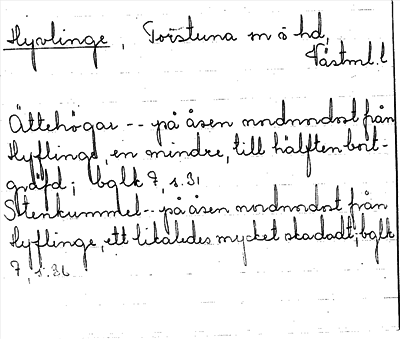 Hyvlinge, Torstuna sn o hd,
Västml. l
Ättehögar -- på åsen nordnordost från
Hyflinge, en mindre, till hälften bort-
gräfd; bglk 7, s. 31
Stenkummel -- på åsen nordnordost från
Hyflinge, ett likaledes mycket skadadt; bglk
7, s. 36